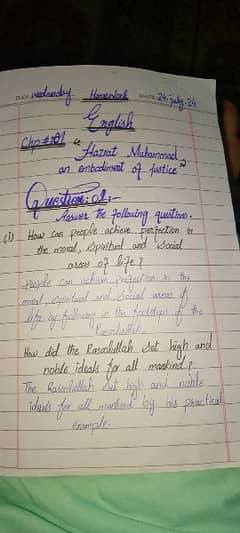 DAY: Wednesday Homework DATE: 24-July-24
English
Chp#01 "Hazrat Muhammad
an embodiment of justice"
Question: 01:-
Answer the following questions.
(i) How can people achieve perfection in
the moral, spiritual and social
areas of life?
People can achieve perfection in the
moral, spiritual and social areas of
life by following in the footsteps of the
Rasoolullah.
How did the Rasoolullah set high and
noble ideals for all mankind?
The Rasoolullah set high and noble
ideals for all mankind by his practical
example.